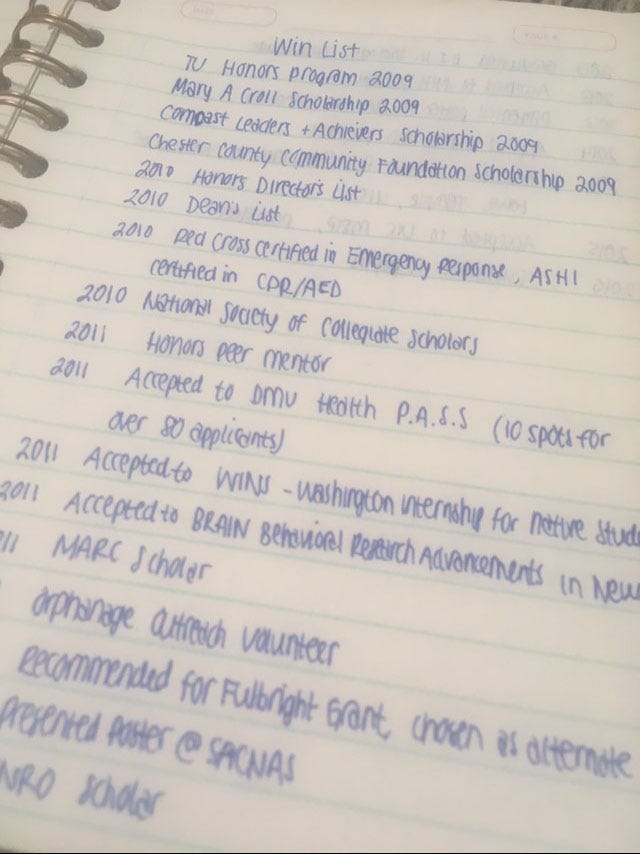 Win List
TU Honors program 2009
Mary A Croll Scholarship 2009
Comcast Leaders + Achievers Scholarship 2009
Chester County Community Foundation Scholarship 2009
2010 Honors Director's List
2010 Dean's List
2010 Red Cross certified in Emergency Response, ASHI
certified in CPR/AED
2010 National Society of Collegiate Scholars
2011 Honors peer mentor
2011 Accepted to DMU Health P.A.S.S (10 spots for
over 80 applicants)
2011 Accepted to WINS - Washington Internship for Native Stud
2011 Accepted to BRAIN Behavioral Research Advancements in Neu
11 MARC Scholar
orphanage outreach volunteer
Recommended for Fulbright Grant, chosen as alternate
presented Poster @ SACNAS
NRO Scholar